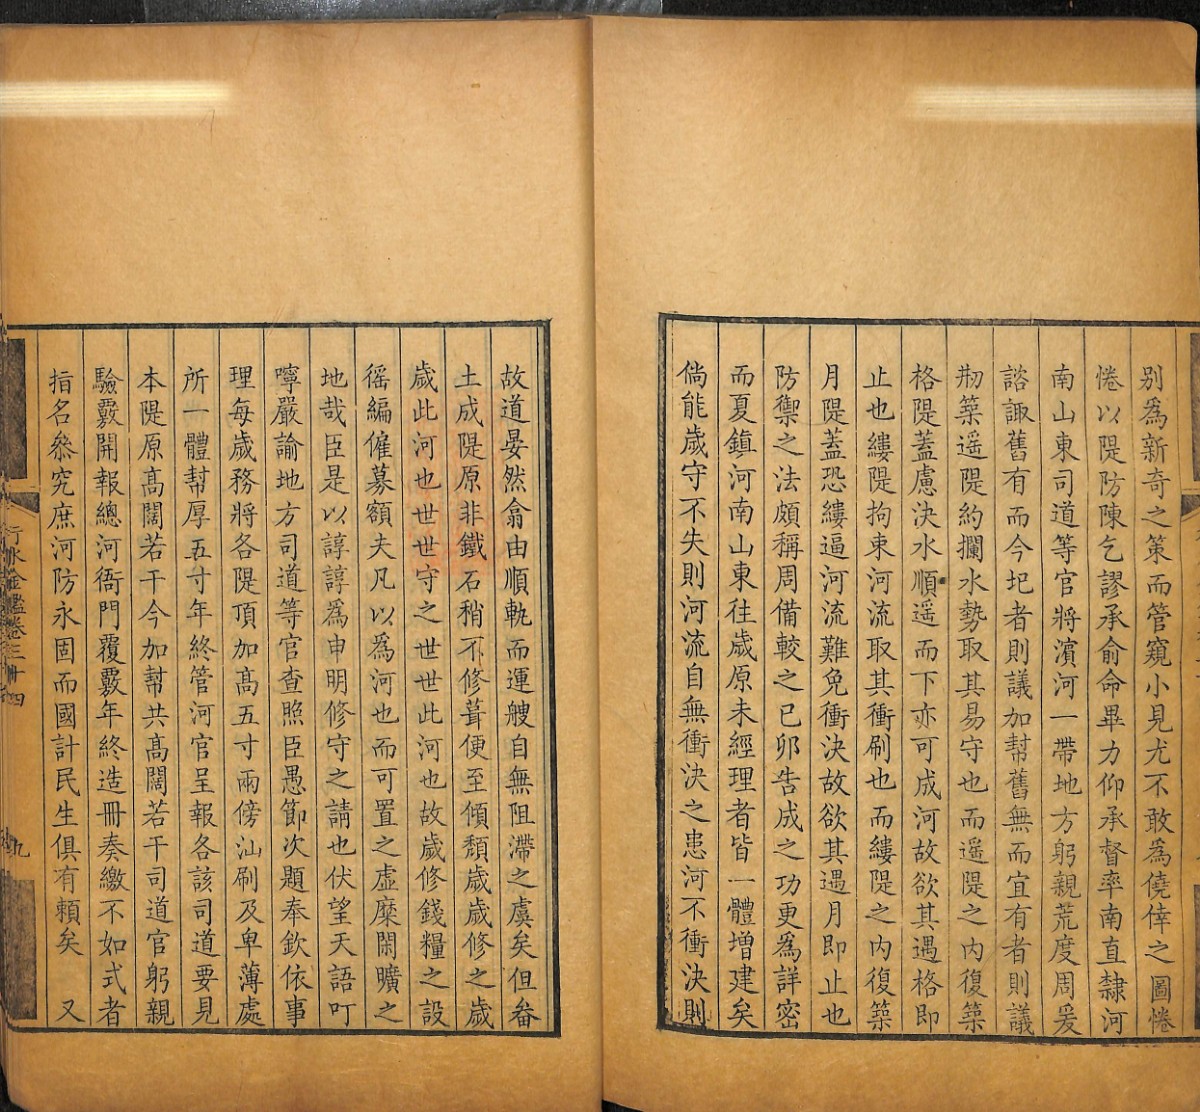 别爲新奇之策而管窺小見尤不敢爲僥倖之圖惓
惓以隄防陳乞謬承俞命畢力仰承督率南直隸河
南山東司道等官將濱河一帶地方躬親荒度周爰
諮諏舊有而今圮者則議加幫舊無而宜有者則議
剙築遥隄約攔水勢取其易守也而遥隄之内復築
格隄蓋慮決水順遥而下亦可成河故欲其遇格即
止也縷隄拘束河流取其衝刷也而縷隄之内復築
月隄蓋恐縷逼河流難免衝決故欲其遇月即止也
防禦之法頗稱周備較之已卯告成之功更爲詳密
而夏鎮河南山東往歲原未經理者皆一體增建矣
倘能歲守不失則河流自無衝決之患河不衝決則
故道晏然翕由順軌而運艘自無阻滯之虞矣但畚
土成隄原非鐵石稍不修葺便至傾頹歲歲修之歲
歲此河也世世守之世世此河也故歲修錢糧之設
徭編僱募額夫凡以爲河也而可置之虛糜閑曠之
地哉臣是以諄諄爲申明修守之請也伏望天語叮
嚀嚴諭地方司道等官查照臣愚節次題奉欽依事
理每歲務將各隄頂加高五寸兩傍汕刷及卑薄處
所一體幫厚五寸年終管河官呈報各該司道要見
本隄原高闊若干今加幫共高闊若干司道官躬親
驗覈開報總河衙門覆覈年終造冊奏繳不如式者
指名叅究庶河防永固而國計民生俱有賴矣　又
行水金鑑卷三十四
九